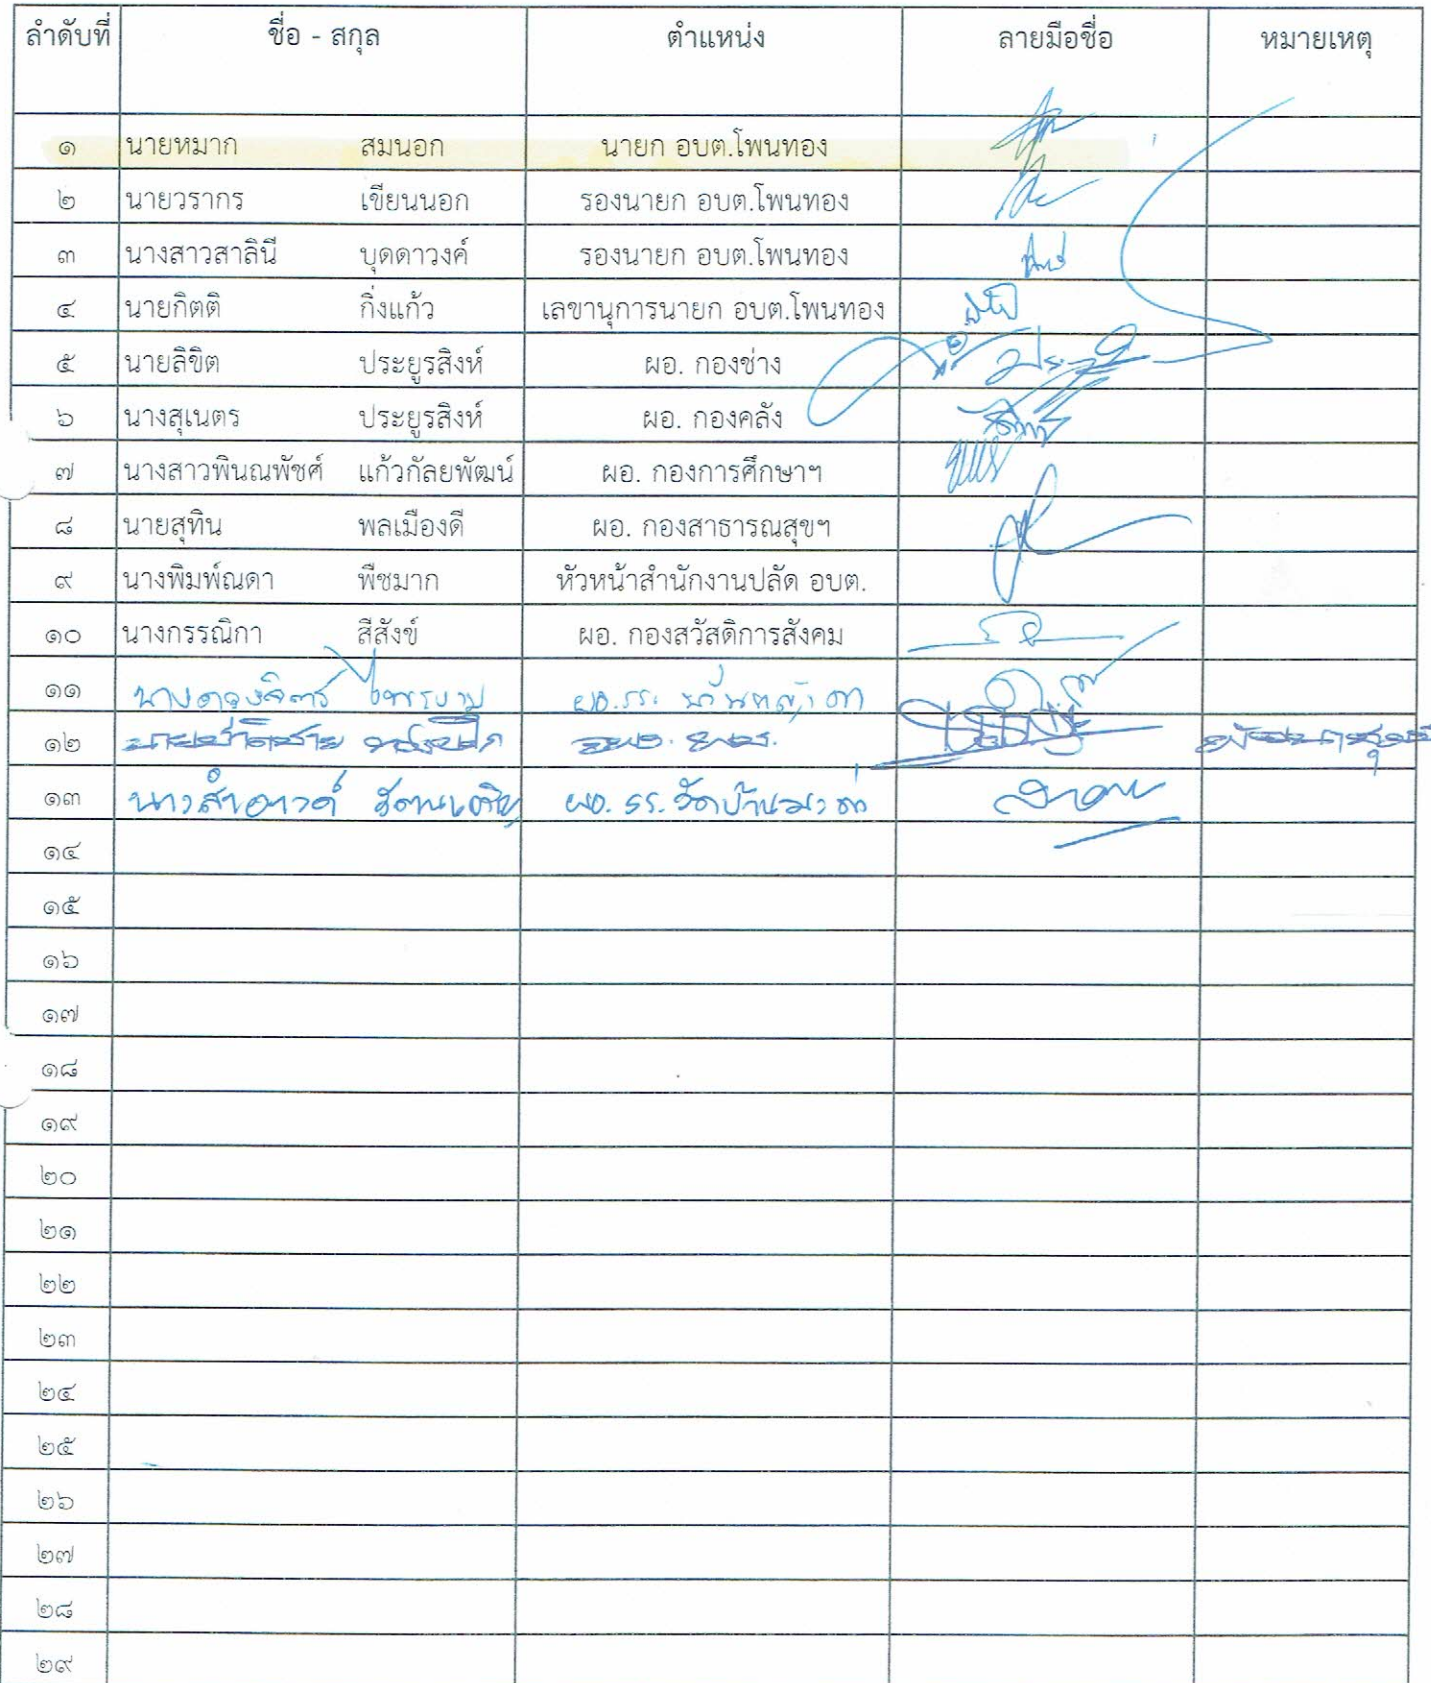 ลำดับที่ ชื่อ - สกุล ตำแหน่ง ลายมือชื่อ หมายเหตุ
๑ นายหมาก สมนอก นายก อบต.โพนทอง
๒ นายวรากร เขียนนอก รองนายก อบต.โพนทอง
๓ นางสาวสาลินี บุดดาวงค์ รองนายก อบต.โพนทอง
๔ นายกิตติ กิ่งแก้ว เลขานุการนายก อบต.โพนทอง
๕ นายลิขิต ประยูรสิงห์ ผอ. กองช่าง
๖ นางสุเนตร ประยูรสิงห์ ผอ. กองคลัง
๗ นางสาวพินณพัชศ์ แก้วกัลยพัฒน์ ผอ. กองการศึกษาฯ
๘ นายสุทิน พลเมืองดี ผอ. กองสาธารณสุขฯ
๙ นางพิมพ์ณดา พืชมาก หัวหน้าสำนักงานปลัด อบต.
๑๐ นางกรรณิกา สีสังข์ ผอ. กองสวัสดิการสังคม
๑๑ นางดวงจิตร ผอ.รร.
๑๒
๑๓ ผอ. รร. วัดบ้าน
๑๔
๑๕
๑๖
๑๗
๑๘
๑๙
๒๐
๒๑
๒๒
๒๓
๒๔
๒๕
๒๖
๒๗
๒๘
๒๙